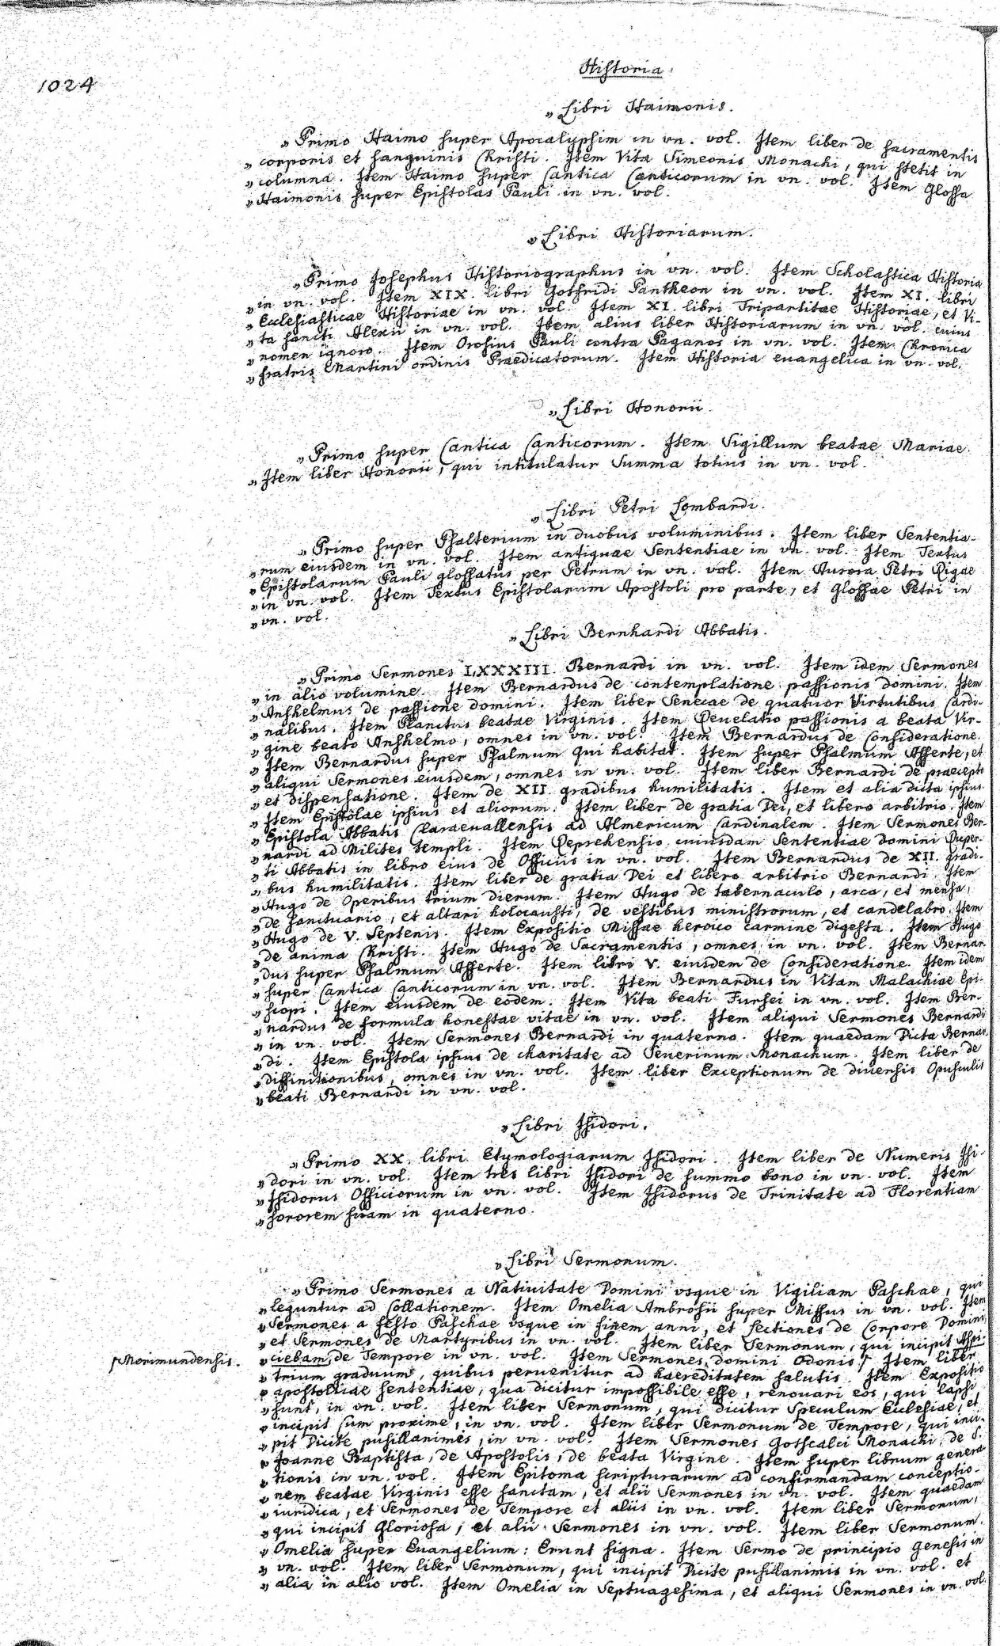 1024
Historia.
„Libri Haimonis.
„Primo Haimo super Apocalypsim in vn. vol. Item liber de sacramentis
„corporis et sanguinis Christi. Item Vita Simeonis Monachi, qui stetit in
„columna. Item Haimo super Cantica Canticorum in vn. vol. Item Glossa
„Haimonis super Epistolas Pauli in vn. vol.
„Libri Historiarum.
„Primo Josephus Historiographus in vn. vol. Item Scholastica Historia
„in vn. vol. Item XIX. libri Gotfridi Pantheon in vn. vol. Item XI. libri
„Ecclesiasticae Historiae in vn. vol. Item XI. libri Tripartitae Historiae, et Vi-
„ta sancti Alexii in vn. vol. Item alius liber Historiarum in vn. vol. cuius
„nomen ignoro. Item Orosius Pauli contra Paganos in vn. vol. Item Chronica
„fratris Martini ordinis Praedicatorum. Item Historia euangelica in vn. vol.
„Libri Honorii.
„Primo super Cantica Canticorum. Item Sigillum beatae Mariae.
„Item liber Honorii, qui intitulatur Summa totius in vn. vol.
„Libri Petri Lombardi.
„Primo super Psalterium in duobus voluminibus. Item liber Sententia-
„rum eiusdem in vn. vol. Item antiquae Sententiae in vn. vol. Item Textus
„Epistolarum Pauli glossatus per Petrum in vn. vol. Item Aurora Petri Rigae
„in vn. vol. Item Textus Epistolarum Apostoli pro parte, et Glossae Petri in
„vn. vol.
„Libri Bernhardi Abbatis.
„Primo Sermones LXXXIII. Bernardi in vn. vol. Item idem Sermones
„in alio volumine. Item Bernardus de contemplatione passionis domini. Item
„Anshelmus de passione domini. Item liber Senecae de quatuor Virtutibus Cardi-
„nalibus. Item Planctus beatae Virginis. Item Reuelatio passionis a beata Vir-
„gine beato Anshelmo, omnes in vn. vol. Item Bernardus de Consideratione.
„Item Bernardus super Psalmum qui habitat. Item super Psalmum Afferte, et
„aliqui Sermones eiusdem, omnes in vn. vol. Item liber Bernardi de praecepto
„et dispensatione. Item de XII. gradibus humilitatis. Item et alia dicta ipsius.
„Item Epistolae ipsius et aliorum. Item liber de gratia Dei, et libero arbitrio. Item
„Epistola Abbatis Claraeuallensis ad Almericum Cardinalem. Item Sermones Ber-
„nardi ad Milites templi. Item Reprehensio cuiusdam Sententiae domini Ruper-
„ti Abbatis in libro eius de Officiis in vn. vol. Item Bernardus de XII. gradi-
„bus humilitatis. Item liber de gratia Dei et libero arbitrio Bernardi. Item
„Hugo de Operibus trium dierum. Item Hugo de tabernaculo, arca, et mensa,
„de sanctuario, et altari holocausti, de vestibus ministrorum, et candelabro. Item
„Hugo de V. Septenis. Item Expositio Missae heroico carmine digesta. Item Hugo
„de anima Christi. Item Hugo de Sacramentis, omnes in vn. vol. Item Bernar-
„dus super Psalmum Afferte. Item libri V. eiusdem de Consideratione. Item idem
„super Cantica Canticorum in vn. vol. Item Bernardus in Vitam Malachiae Epi-
„scopi. Item eiusdem de eodem. Item Vita beati Fursei in vn. vol. Item Ber-
„nardus de formula honestae vitae in vn. vol. Item aliqui Sermones Bernardi
„in vn. vol. Item Sermones Bernardi in quaterno. Item quaedam Dicta Bernar-
„di. Item Epistola ipsius de charitate ad Seuerinum Monachum. Item liber de
„diffinitionibus, omnes in vn. vol. Item liber Exceptionum de diuersis Opusculis
„beati Bernardi in vn. vol.
„Libri Isidori.
„Primo XX. libri Etymologiarum Isidori. Item liber de Numeris Isi-
„dori in vn. vol. Item tres libri Isidori de summo bono in vn. vol. Item
„Isidorus Officiorum in vn. vol. Item Isidorus de Trinitate ad Florentiam
„sororem suam in quaterno.
„Libri Sermonum.
„Primo Sermones a Natiuitate Domini vsque in Vigiliam Paschae, qui
„leguntur ad Collationem. Item Omelia Ambrosii super Missus in vn. vol. Item
„Sermones a festo Paschae vsque in finem anni, et lectiones de Corpore Domini,
„et Sermones de Martyribus in vn. vol. Item liber Sermonum, qui incipit Aspi-
„ciebam, de Tempore in vn. vol. Item Sermones domini Odonis ſ Item liber
ſ Morimundensis.
„trium graduum, quibus peruenitur ad haereditatem salutis. Item Expositio
„apostolicae sententiae, qua dicitur impossibile esse, renouari eos, qui lapsi
„sunt, in vn. vol. Item liber Sermonum, qui dicitur Speculum Ecclesiae, et
„incipit Cum proxime, in vn. vol. Item liber Sermonum de Tempore, qui inci-
„pit Dicite pusillanimes, in vn. vol. Item Sermones Gotscalci Monachi, de S.
„Joanne Baptista, de Apostolis, de beata Virgine. Item super librum genera-
„tionis in vn. vol. Item Epitoma scripturarum ad confirmandam conceptio-
„nem beatae Virginis esse sanctam, et alii Sermones in vn. vol. Item quaedam
„iuridica, et Sermones de Tempore et aliis in vn. vol. Item liber Sermonum,
„qui incipit Gloriosa, et alii Sermones in vn. vol. Item liber Sermonum.
„Omelia super Euangelium: Erunt signa. Item Sermo de principio Genesis in
„vn. vol. Item liber Sermonum, qui incipit Dicite pusillanimis in vn. vol. et
„alia in alio vol. Item Omelia in Septuagesima, et aliqui Sermones in vn. vol.